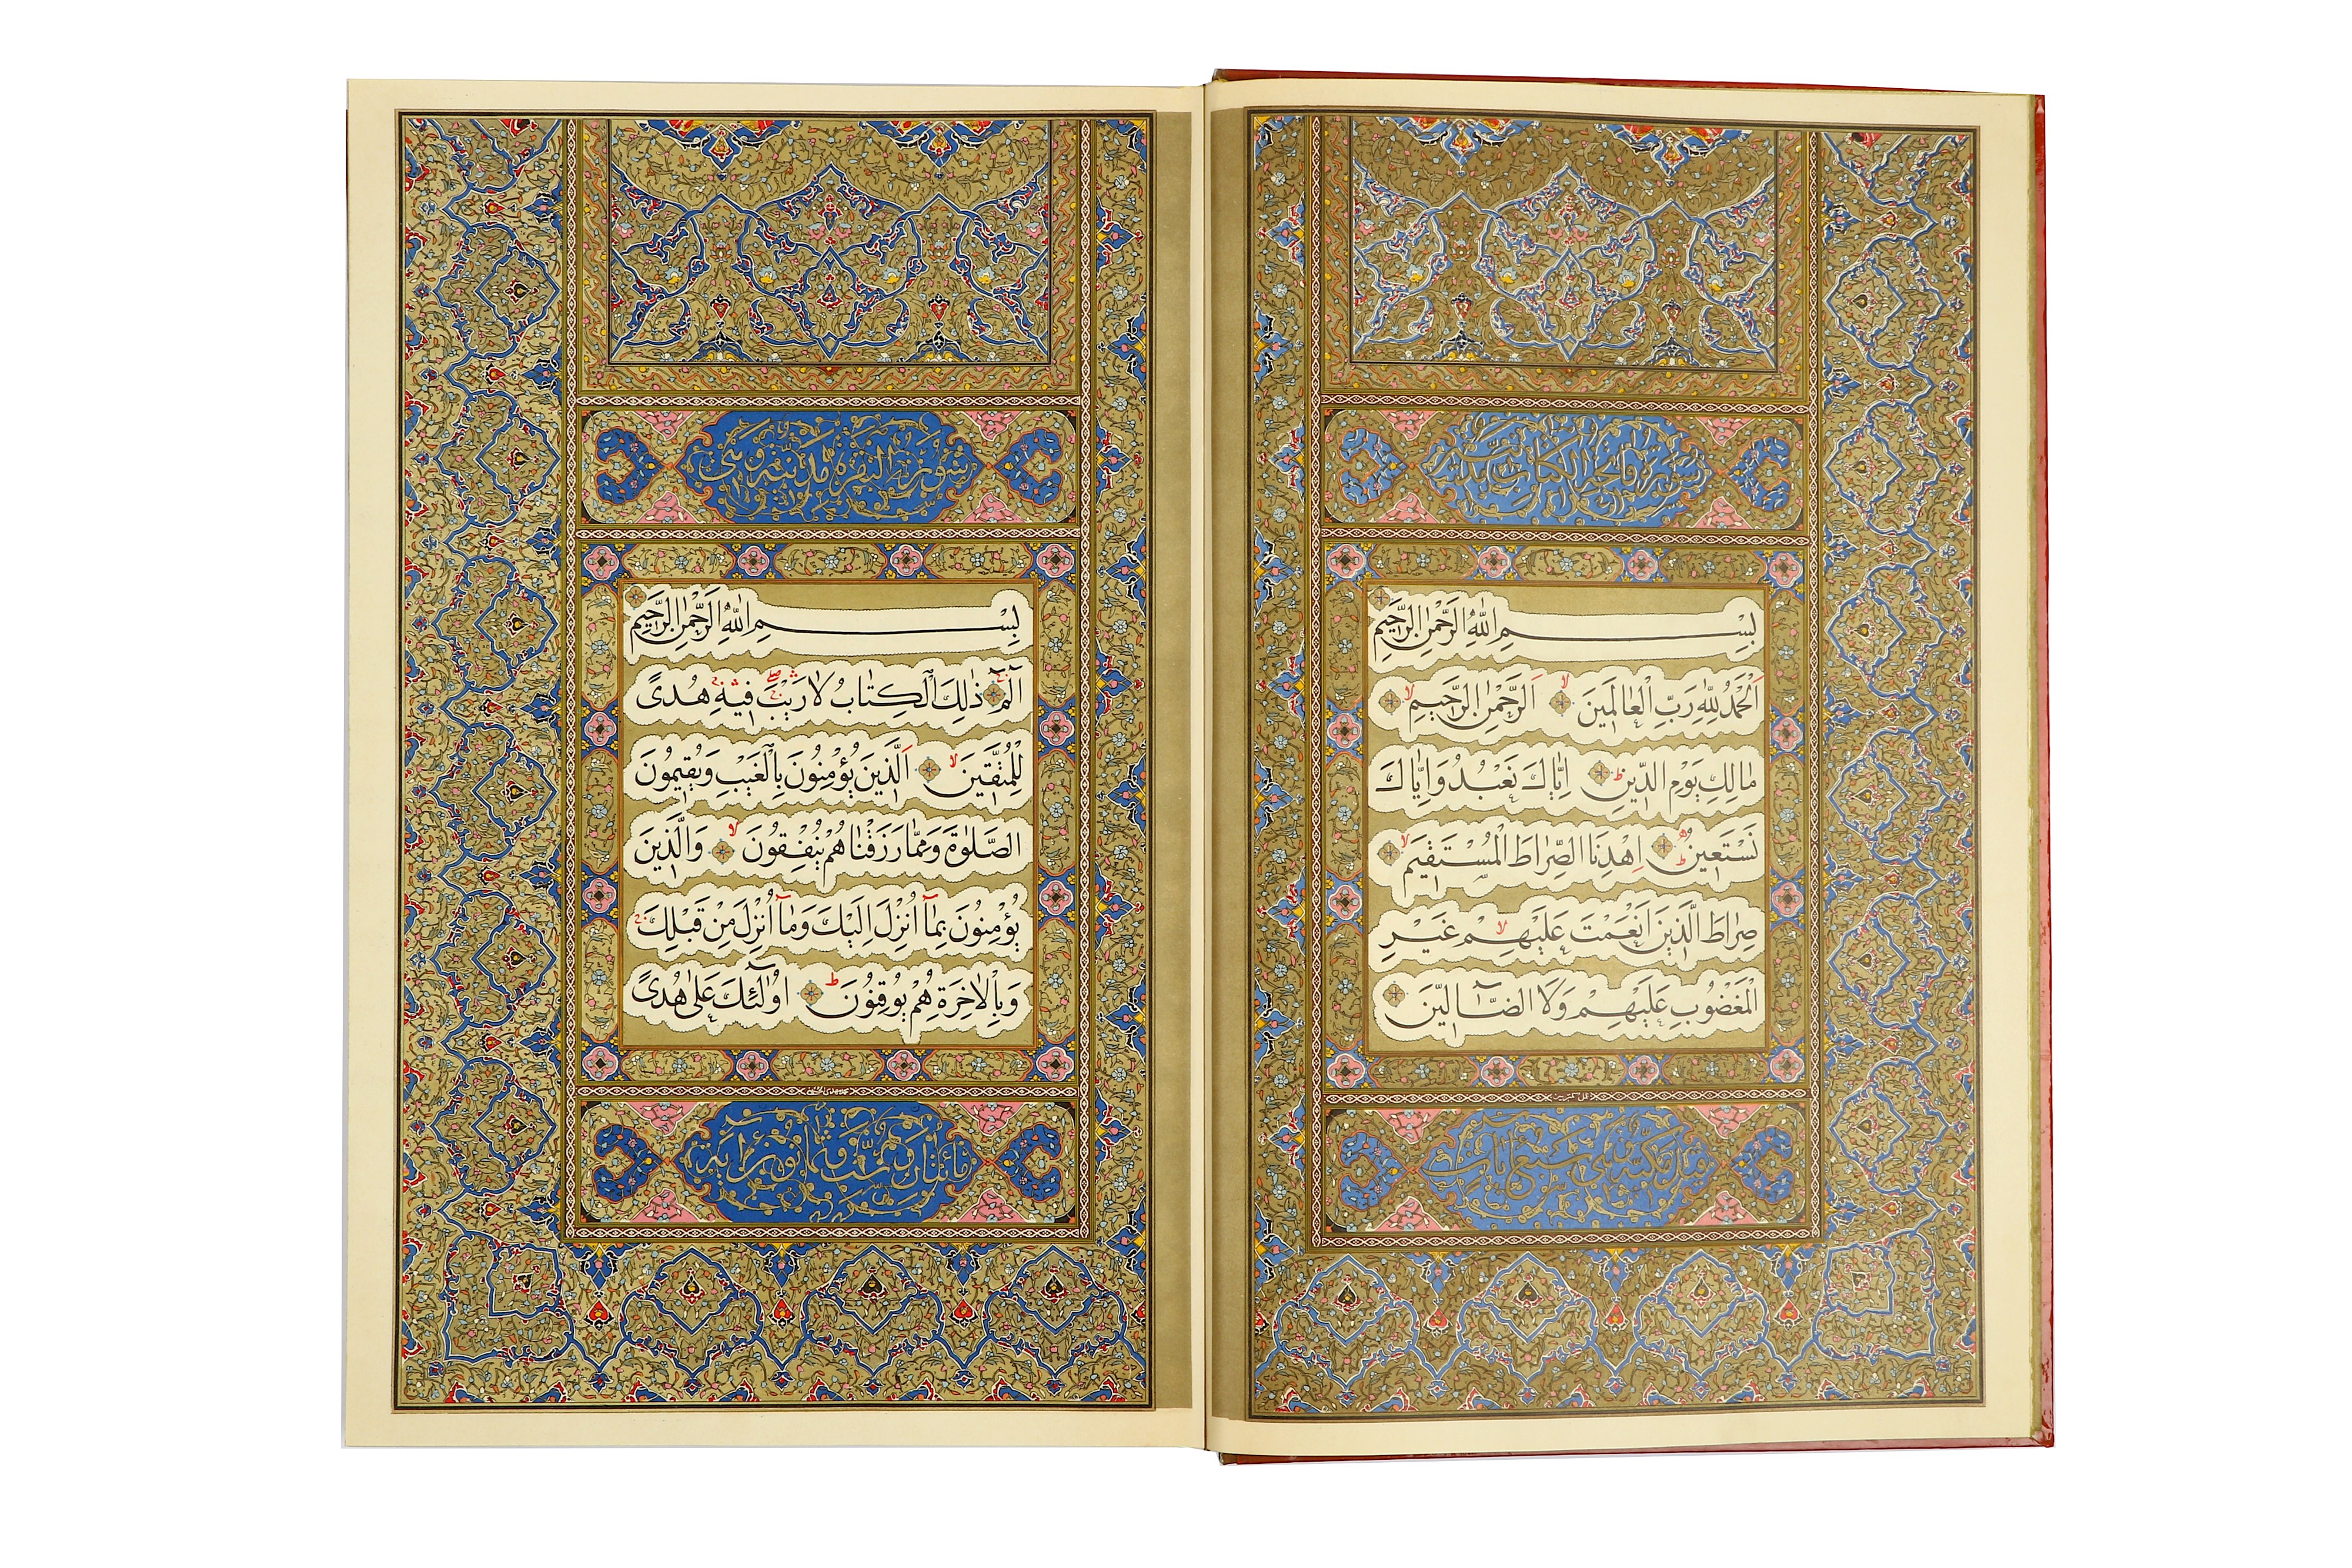 سورة فاتحة الكتاب
بِسْمِ اللّٰهِ الرَّحْمٰنِ الرَّحٖيمِ
اَلْحَمْدُ لِلّٰهِ رَبِّ الْعَالَمٖينَ ۙ اَلرَّحْمٰنِ الرَّحٖيمِ ۙ
مَالِكِ يَوْمِ الدّٖينِ ۜ اِيَّاكَ نَعْبُدُ وَاِيَّاكَ
نَسْتَعٖينُ ۜ اِهْدِنَا الصِّرَاطَ الْمُسْتَقٖيمَ ۙ
صِرَاطَ الَّذٖينَ اَنْعَمْتَ عَلَيْهِمْ ۙ غَيْرِ
الْمَغْضُوبِ عَلَيْهِمْ وَلَا الضَّٓالّٖينَ
سبع آيات
سورة البقرة مدنية وهي
بِسْمِ اللّٰهِ الرَّحْمٰنِ الرَّحٖيمِ
الٓمٓ ۚ ذٰلِكَ الْكِتَابُ لَا رَيْبَ ۚۛ فٖيهِ ۚۛ هُدًى
لِلْمُتَّقٖينَ ۙ اَلَّذٖينَ يُؤْمِنُونَ بِالْغَيْبِ وَيُقٖيمُونَ
الصَّلٰوةَ وَمِمَّا رَزَقْنَاهُمْ يُنْفِقُونَ ۙ وَالَّذٖينَ
يُؤْمِنُونَ بِمَٓا اُنْزِلَ اِلَيْكَ وَمَٓا اُنْزِلَ مِنْ قَبْلِكَ ۚ
وَبِالْاٰخِرَةِ هُمْ يُوقِنُونَ ۜ اُولٰٓئِكَ عَلٰى هُدًى
آية